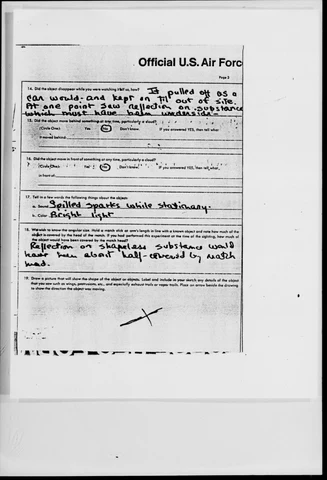 Official U.S. Air Forc
Page 3
14. Did the object disappear while you were watching it? If so, how? It pulled off as a
car would - and kept on til out of site.
At one point saw reflection on substance
which must have been underside -
15. Did the object move behind something at any time, particularly a cloud?
(Circle One): Yes No Don't Know. If you answered YES, then tell what
it moved behind
16. Did the object move in front of something at any time, particularly a cloud?
(Circle One): Yes No Don't Know. If you answered YES, then tell what
in front of
17. Tell in a few words the following things about the object:
a. Sound Spilled sparks while stationary.
b. Color Bright light
18. We wish to know the angular size. Hold a match stick at arm's length in line with a known object and note how much of the
object is covered by the head of the match. If you had performed this experiment at the time of the sighting, how much of
the object would have been covered by the match head?
Reflection on shapeless substance would
have been about half-covered by match
head.
19. Draw a picture that will show the shape of the object or objects. Label and include in your sketch any details of the object
that you saw such as wings, protrusions, etc., and especially exhaust trails or vapor trails. Place an arrow beside the drawing
to show the direction the object was moving.